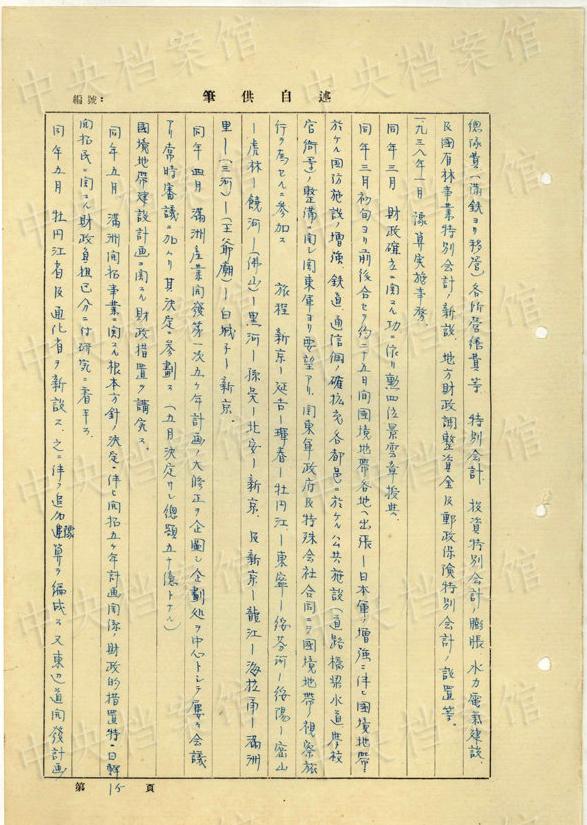 中央档案馆
編號：
筆供自述
總係費(滿鉄ヨリ移管)各所營繕費等 特別会計 投資特別会計ノ膨脹、水力電氣建設
及國有林事業特別会計ノ新設、地方財政調整資金及郵政保険特別会計ノ設置等。
一九三八年一月 豫算実施事務。
同年三月 財政確立ニ関スル功ニ依リ勲四位景雲章授典、
同年三月初旬ヨリ前後合セテ約二十五日間國境地帶各地ヘ出張ー日本軍ノ増強ニ伴ヒ國境地帶
於ケル国防施設ノ増強、鉄道、通信網ノ確拡充各都邑ニ於ケル公共施設(道路橋梁水道學校
官衙等)ノ整備ニ関シ関東軍ヨリ要望アリ、関東軍政府及特殊会社合同ニテ國境地帶ノ視察旅
行ヲ為セルニ参加ス 旅程 新京ー延吉ー琿春ー牡丹江ー東寧ー綏芬河ー綏陽ー密山
ー虎林ー饒河ー(佛山)ー黒河ー孫吴ー北安ー新京、及新京ー龍江ー海拉甭ー滿洲
里ー(三河)ー(王爺廟)ー白城子ー新京、
同年四月 滿洲産業開發第一次五ケ年計画ノ大修正ヲ企圖シ企劃処ヲ中心トシテ屡々会議
アリ常時審議ニ加ハリ其決定ニ参劃ス (五月決定サレ總額五十億トナル)
國境地帶建設計画ニ関スル財政措置ヲ講究ス。
同年五月 滿洲開拓事業ニ関スル根本方針ノ決定ニ伴ヒ開拓五ケ年計画関係ノ財政的措置特ニ日鮮
開拓民ニ関スル財政負担区分ニ付研究ニ着手ス、
同年五月 牡丹江省及通化省ヲ新設ス、之ニ伴フ追加豫算ヲ編成ス又東辺道開發計画
第15頁